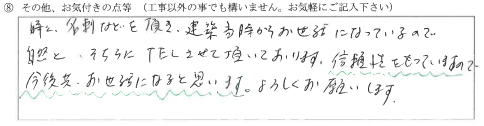 ⑧ その他、お気付きの点等 （工事以外の事でも構いません。お気軽にご記入下さい）
時に、名刺などを頂き、建築当時からお世話になっているので
自然と、そちらにTELさせて頂いております。信頼性をもっていますので
今後共、お世話になると思います。よろしくお願いします。